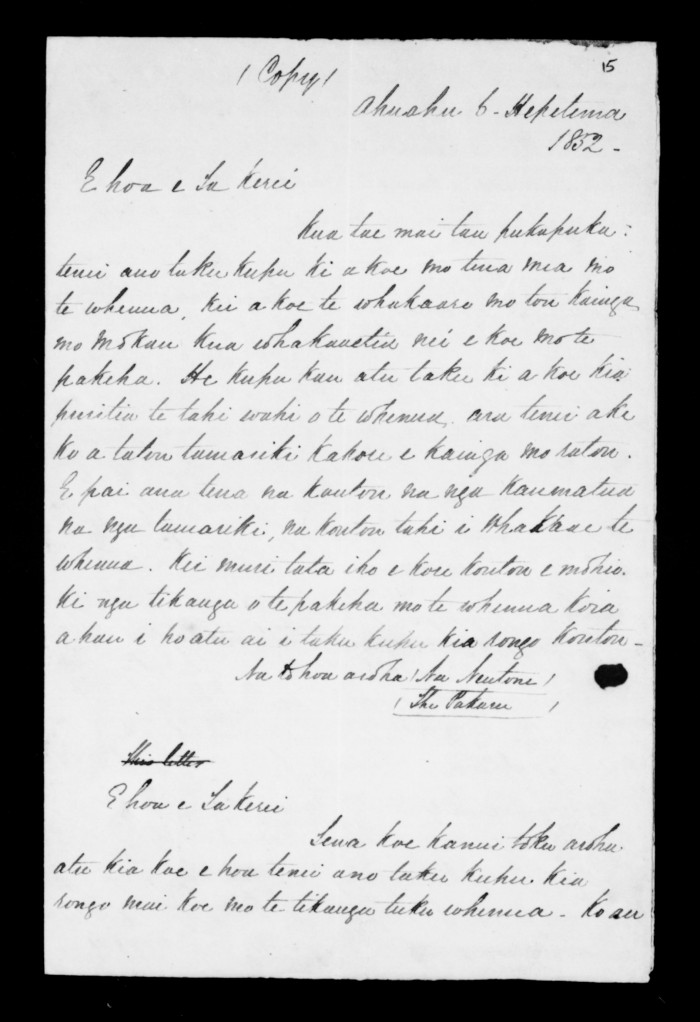 15
(Copy)
Ahuahu 6 - Hepetema
1852 -
E hoa e Ta Kerei
Kua tae mai tau pukapuka:
tenei ano taku kupu ki a koe mo tena mea mo
te whenua, kei a koe te whakaaro mo tou kainga
mo Mokau kua whakaaetia nei e koe mo te
pakeha. He kupu kau atu taku ki a koe kia
puritia te tahi wahi o te whenua, ara tenei ake
ko a tatou tamariki kahore e kainga mo ratou.
E pai ana tena na koutou na nga kaumatua
na nga tamariki, na koutou tahi i whakaae te
whenua. Kei muri tata iho e kore koutou e mohio.
ki nga tikanga o te pakeha mo te whenua koia
ahau i hoatu ai i taku kupu kia rongo koutou -
Na to hoa aroha (Na Neutone)
(The Pakaru)
This letter
E hoa e Ta Kerei
Tena koe kanui toku aroha
atu kia koe e hoa tenei ano taku kupu kia
rongo mai koe mo te tikanga tuku whenua - Ko au